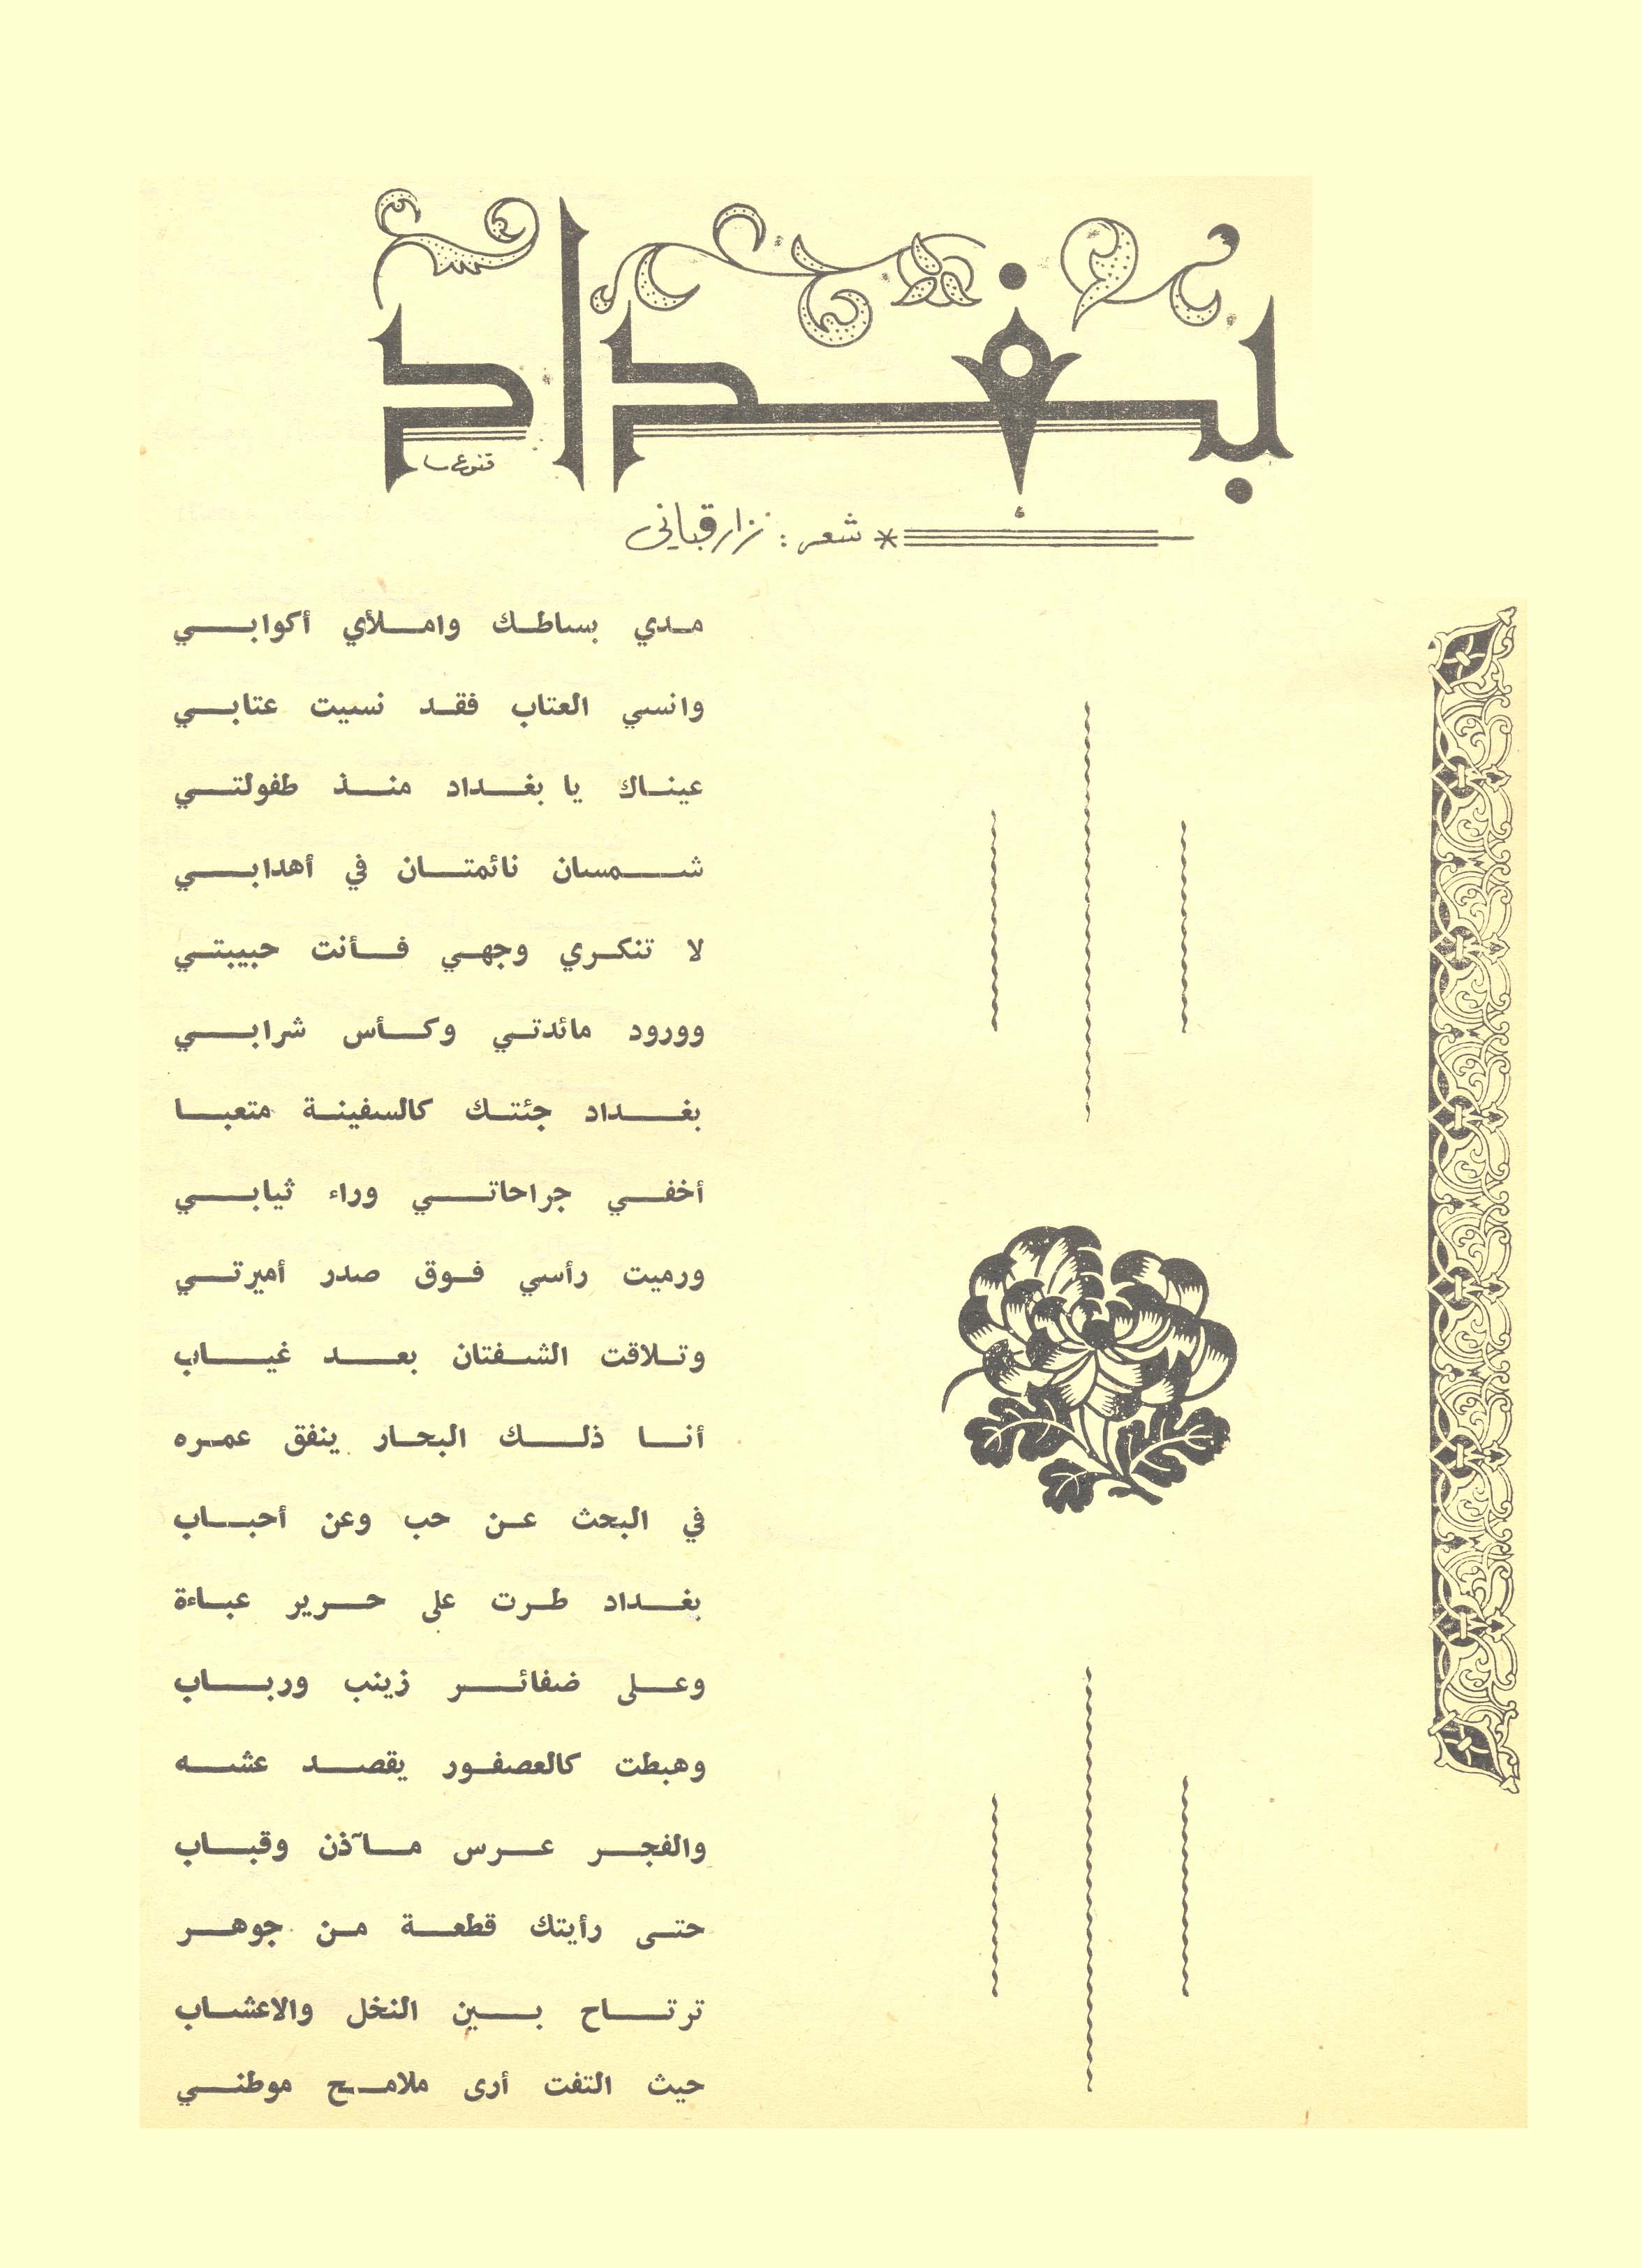 بغداد
شعر : نزار قباني
مدي بساطك واملأي أكوابي
وانسي العتاب فقد نسيت عتابي
عيناك يا بغداد منذ طفولتي
شمسان نائمتان في أهدابي
لا تنكري وجهي فأنت حبيبتي
وورود مائدتي وكأس شرابي
بغداد جئتك كالسفينة متعبا
أخفي جراحاتي وراء ثيابي
ورميت رأسي فوق صدر أميرتي
وتلاقت الشفتان بعد غياب
أنا ذلك البحار ينفق عمره
في البحث عن حب وعن أحباب
بغداد طرت على حرير عباءة
وعلى ضفائر زينب ورباب
وهبطت كالعصفور يقصد عشه
والفجر عرس مآذن وقباب
حتى رأيتك قطعة من جوهر
ترتاح بين النخل والاعشاب
حيث التفت أرى ملامح موطني